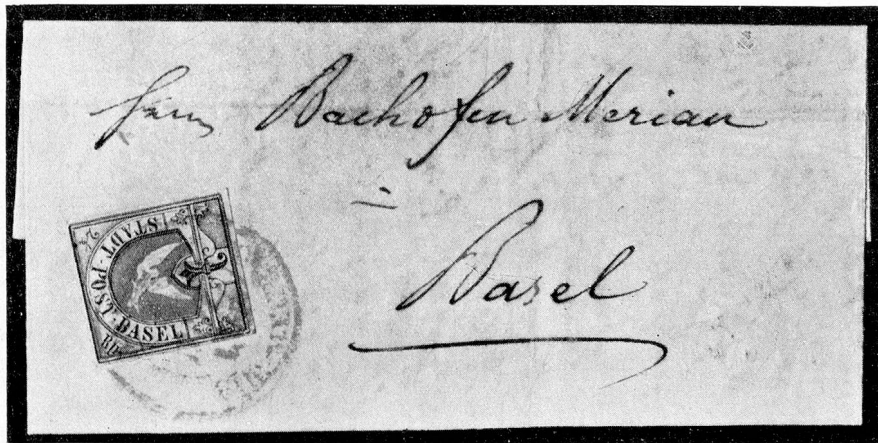 Herrn Bachofen Merian
Basel
STADT-POST-BASEL
2½
RP.